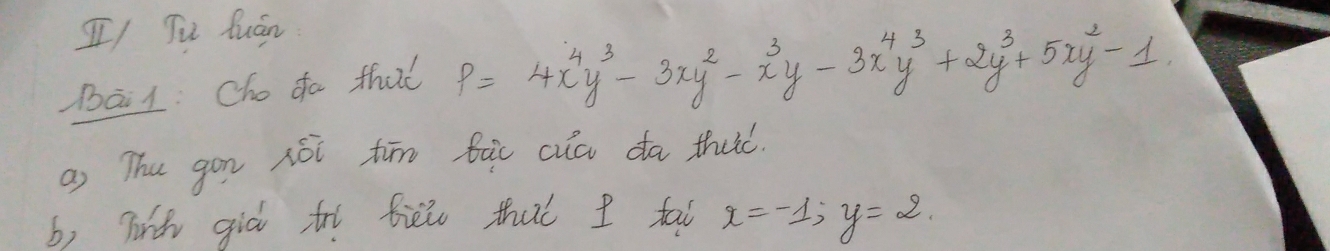 II/ Tự luận:
Bài 1: Cho đa thức P = 4x⁴y³ - 3xy² - x³y - 3x⁴y³ + 2y³ + 5xy² - 1.
a) Thu gọn rồi tìm bậc của đa thức.
b) Tính giá trị biểu thức P tại x = -1; y = 2.